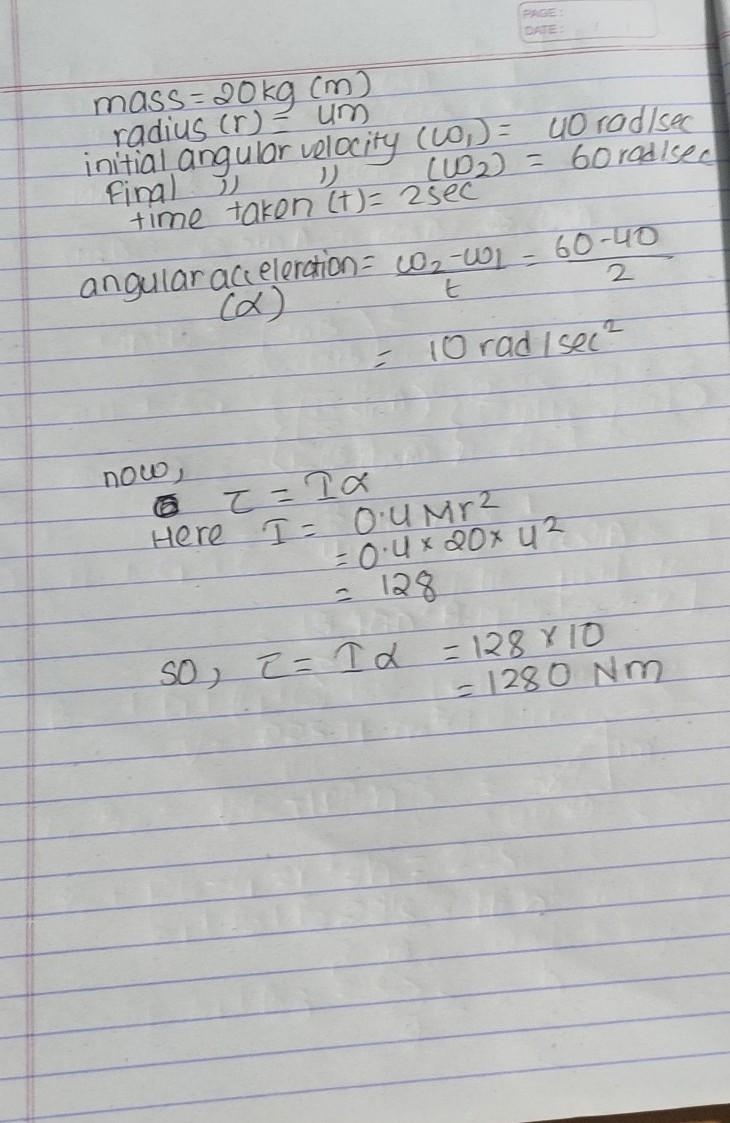 PAGE:
DATE:
mass = 20kg (m)
radius (r) = 4m
initial angular velocity (ω₁) = 40 rad/sec
Final " " (ω₂) = 60 rad/sec
time taken (t) = 2sec
angular acceleration = ω₂-ω₁/t = 60-40/2
(α)
= 10 rad/sec²
now,
τ = Iα
Here I = 0.4 Mr²
= 0.4 × 20 × 4²
= 128
so, τ = Iα = 128 × 10
= 1280 Nm